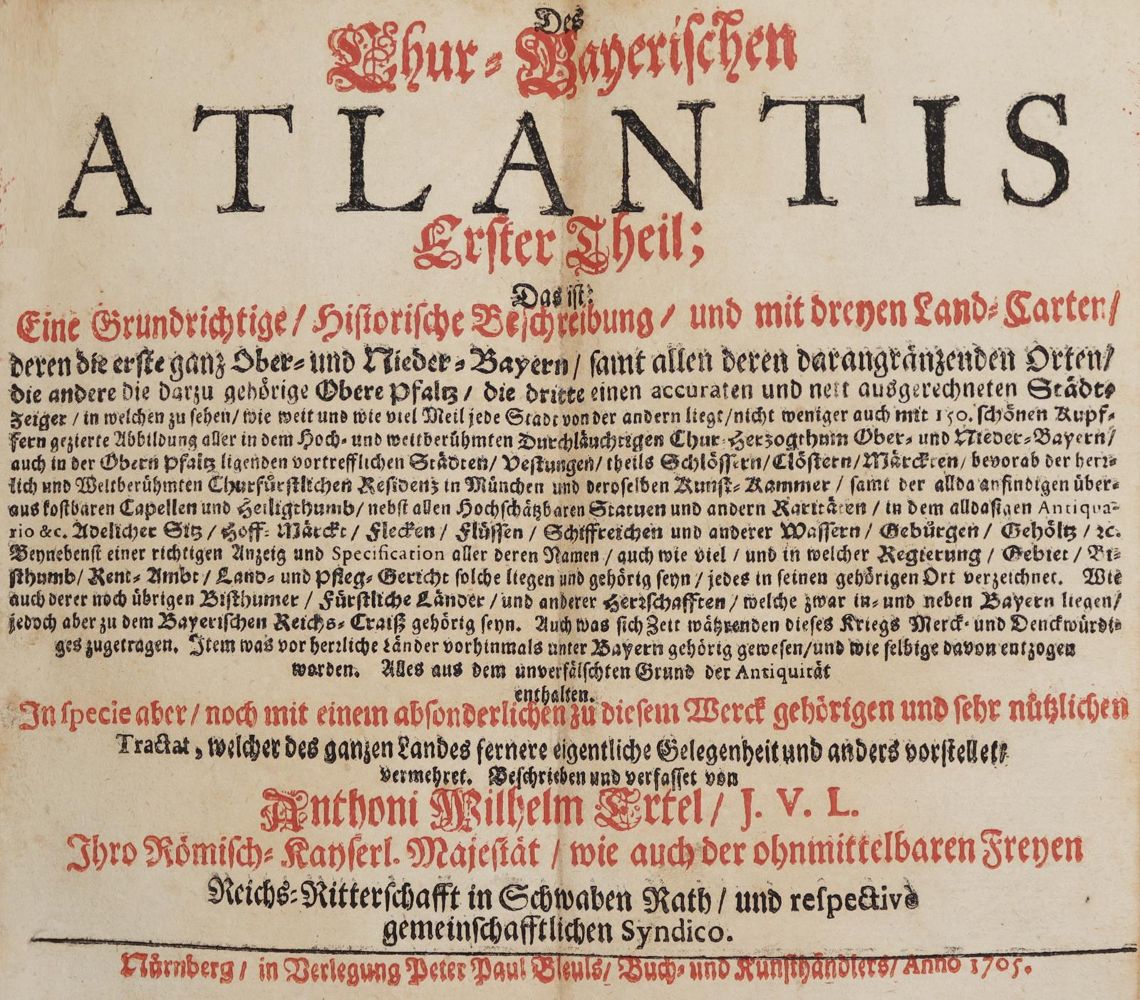 Des
Chur-Bayerischen
ATLANTIS
Erster Theil;
Das ist:
Eine Grundrichtige / Historische Beschreibung / und mit dreyen Land-Carten /
deren die erste ganz Ober- und Nieder-Bayern / samt allen deren darangränzenden Orten /
die andere die darzu gehörige Obere Pfaltz / die dritte einen accuraten und nett ausgerechneten Städt-
Zeiger / in welchen zu sehen / wie weit und wie viel Meil jede Stadt von der andern liegt / nicht weniger auch mit 150. schönen Kupf-
fern gezierte Abbildung aller in dem Hoch- und weitberühmten Durchläuchtigen Chur-Herzogthum Ober- und Nieder-Bayern /
auch in der Obern Pfaltz ligenden vortrefflichen Städten / Vestungen / theils Schlössern / Clöstern / Märckten / bevorab der herr-
lich und Weltberühmten Churfürstlichen Residenz in München und deroselben Kunst-Kammer / samt der allda anfindigen über-
aus kostbaren Capellen und Heiligthumb / nebst allen Hochschätzbaren Statuen und andern Raritäten / in dem alldasigen Antiqua-
rio &c. Adelicher Sitz / Hoff-Märckt / Flecken / Flüssen / Schiffreichen und anderer Wassern / Gebürgen / Gehöltz / ꝛc.
Beynebenst einer richtigen Anzeig und Specification aller deren Namen / auch wie viel / und in welcher Regierung / Gebiet / Bi-
sthumb / Rent-Ambt / Land- und Pfleg-Gericht solche liegen und gehörig seyn / jedes in seinen gehörigen Ort verzeichnet. Wie
auch derer noch übrigen Bisthumer / Fürstliche Länder / und anderer Herrschafften / welche zwar in- und neben Bayern liegen /
jedoch aber zu dem Bayerischen Reichs-Craiß gehörig seyn. Auch was sich Zeit währenden dieses Kriegs Merck- und Denckwürdi-
ges zugetragen. Item was vor herzliche Länder vorhinmals unter Bayern gehörig gewesen / und wie selbige davon entzogen
worden. Alles aus dem unverfälschten Grund der Antiquität
enthalten.
In specie aber / noch mit einem absonderlichen zu diesem Werck gehörigen und sehr nützlichen
Tractat, welcher des ganzen Landes fernere eigentliche Gelegenheit und anders vorstellet /
vermehret. Beschrieben und verfasset von
Anthoni Wilhelm Ertel / J. V. L.
Ihro Römisch-Kayserl. Majestät / wie auch der ohnmittelbaren Freyen
Reichs-Ritterschafft in Schwaben Rath / und respectivè
gemeinschafftlichen Syndico.
Nürnberg / in Verlegung Peter Paul Bleuls / Buch- und Kunsthändlers / Anno 1705.